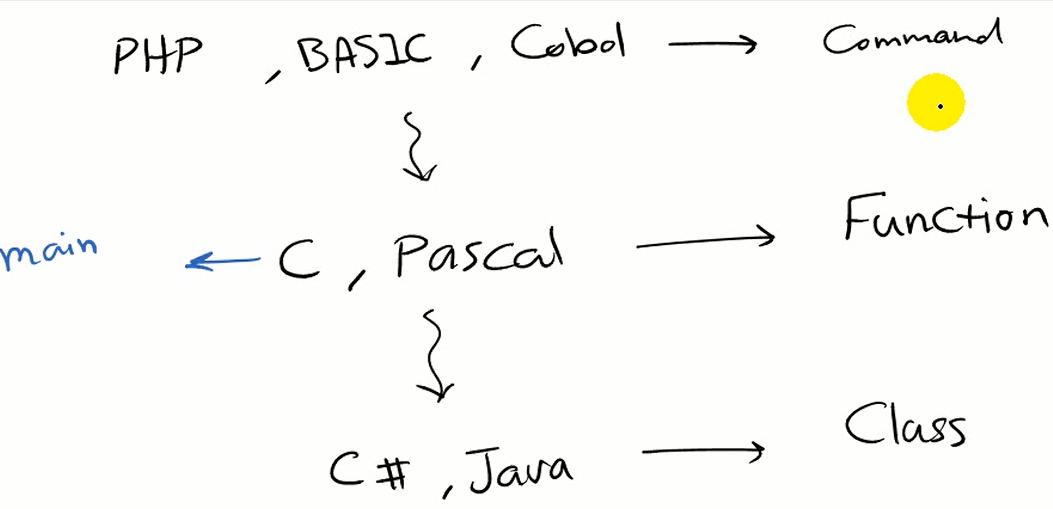 PHP , BASIC , Cobol → Command
main ← C , Pascal → Function
C# , Java → Class